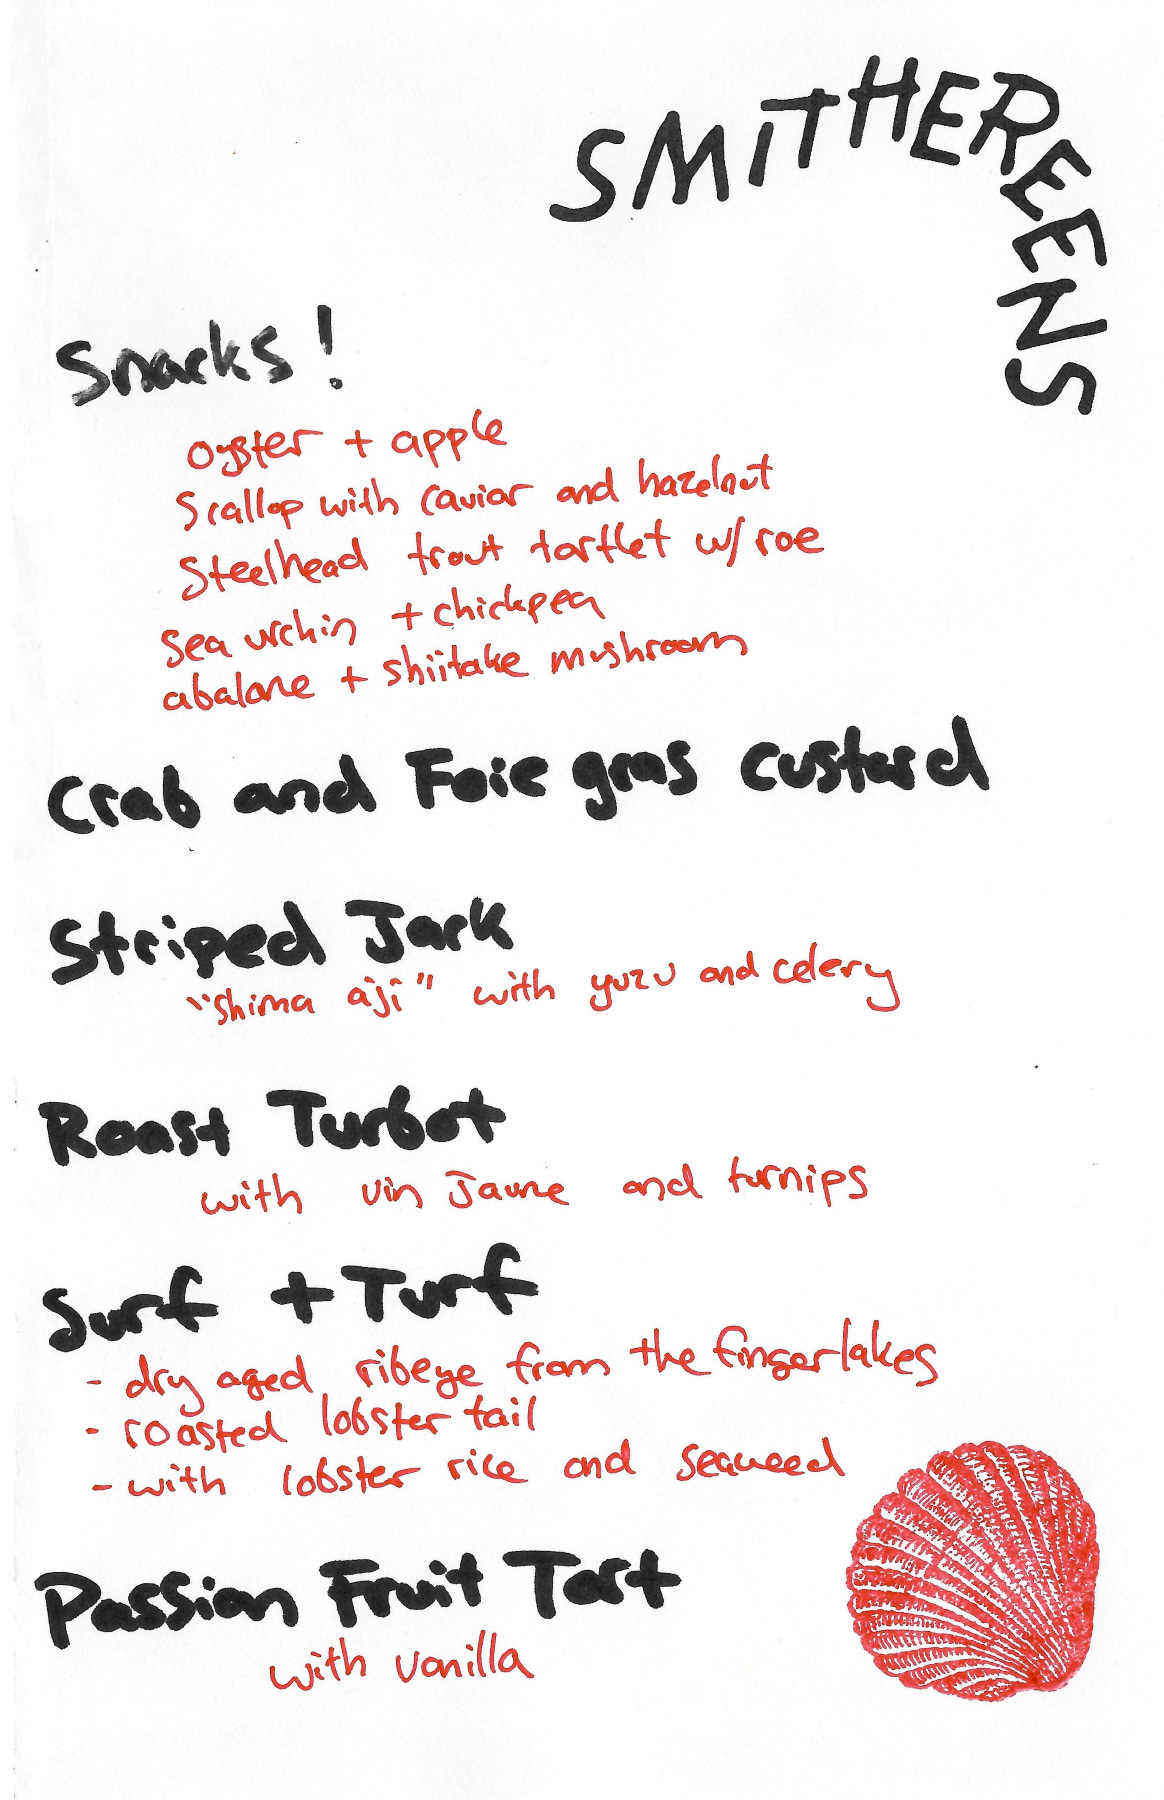 SMITHEREENS
Snacks!
oyster + apple
Scallop with caviar and hazelnut
Steelhead trout tartlet w/ roe
sea urchin + chickpea
abalone + shiitake mushroom
Crab and Foie gras custard
Striped Jack
"shima aji" with yuzu and celery
Roast Turbot
with vin Jaune and turnips
Surf + Turf
- dry aged ribeye from the fingerlakes
- roasted lobster tail
- with lobster rice and seaweed
Passion Fruit Tart
with vanilla